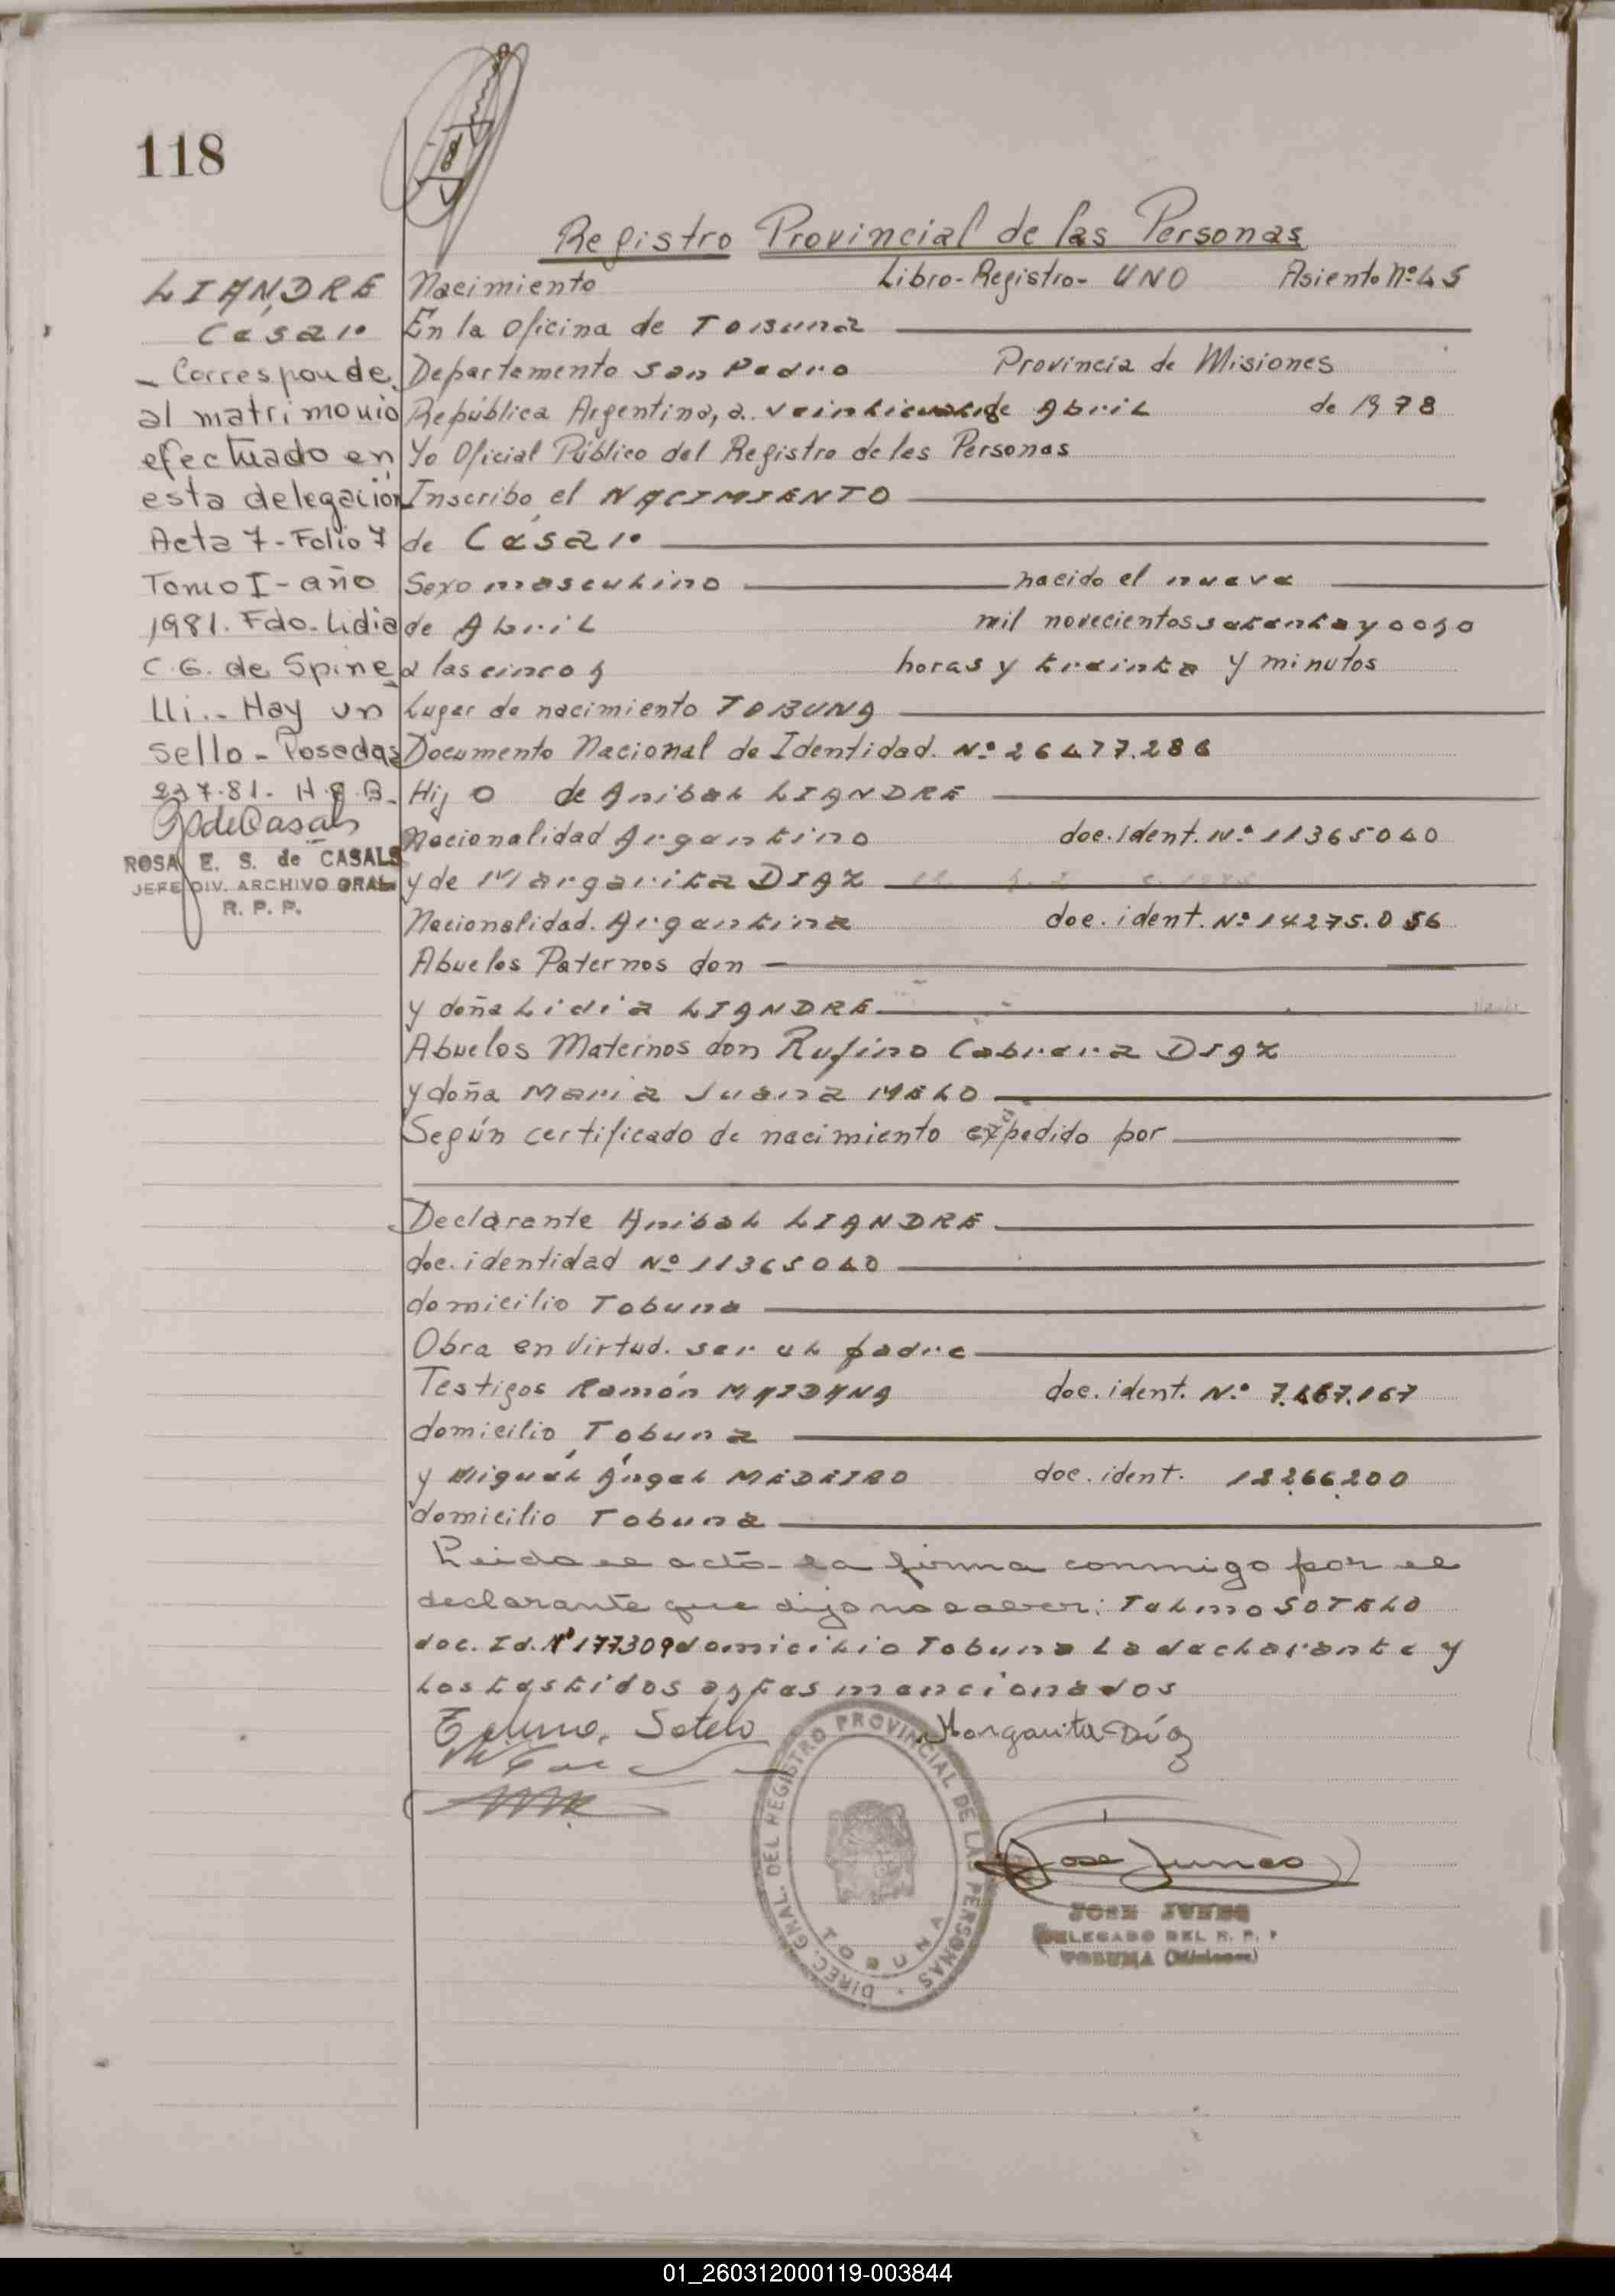 118
Registro Provincial de las Personas
LIANDRE
César
- Corresponde
al matrimonio
efectuado en
esta delegación
Acta 7-Folio 7
Tomo I-año
1981. Fdo. Lidia
C.G. de Spine
lli.- Hay un
sello - Posadas
R.7.81. H.B.
ROSA E. S. de CASALS
JEFE DIV. ARCHIVO GRAL
R. P. P.
Nacimiento Libro-Registro- UNO Asiento Nº45
En la Oficina de TOBUNA
Departamento San Pedro Provincia de Misiones
República Argentina, a de Abril de 1978
Yo Oficial Público del Registro de les Personas
Inscribo el NACIMIENTO
de César
Sexo masculino nacido el nueve
de Abril mil novecientos setenta y ocho
a las cinco horas y treinta y minutos
Lugar de nacimiento TOBUNA
Documento Nacional de Identidad. Nº 26477.286
Hij o de Anibal LIANDRE
Nacionalidad Argentino doc. ident. Nº 11365040
y de Margarita DIAZ
Nacionalidad. Argentina doc. ident. Nº 14275.056
Abuelos Paternos don
y doña Lidia LIANDRE
Abuelos Maternos don Rufino Cabrera DIAZ
y doña Maria Juana MELO
Según certificado de nacimiento expedido por
Declarante Anibal LIANDRE
doc. identidad Nº 11365040
domicilio Tobuna
Obra en Virtud. ser el padre
Testigos Ramón MAIDANA doc. ident. Nº 7.467.167
domicilio Tobuna
y Miguél Ángel MEDEIRO doc. ident. 12.266.200
domicilio Tobuna
Leido el acto la firma conmigo por el
declarante que dijo no saber: Telmo SOTELO
doc. Id. Nº 177309 domicilio Tobuna La declarante y
los testidos antes mencionados
Telmo Sotelo Margarita Díaz
DIREC. GRAL. DEL REGISTRO PROVINCIAL DE LAS PERSONAS
TOBUNA
José Junes
JOSE JUNES
DELEGADO DEL R. P. P
TOBUNA (Misiones)
01_260312000119-003844